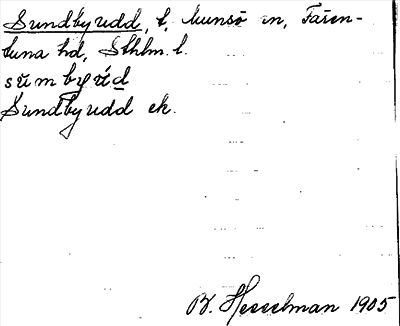 Sundby udd, t. Munsö sn, Fären-
tuna hd, Sthlm. l.
súmbyúd
Sundby udd ek.
B. Hesselman 1905